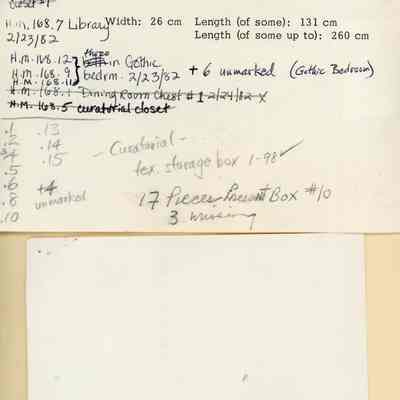 closet #1
H.M. 168.7 Library Width: 26 cm Length (of some): 131 cm
2/23/82 Length (of some up to): 260 cm
H.M. 168.12 these
H.M. 168.9 in Gothic
H.M. 168.11 bedrm. 2/23/82 + 6 unmarked (Gothic Bedroom)
H.M. 168.1 Dining Room Chest #1 2/24/82 X
H.M. 168.5 curatorial closet
.1 .13
.2 .14
.4 .15
.5
.6 +4
.8 unmarked
.10
- Curatorial -
tex. storage box 1-98 ✓
17 Pieces Present Box #10
3 missing